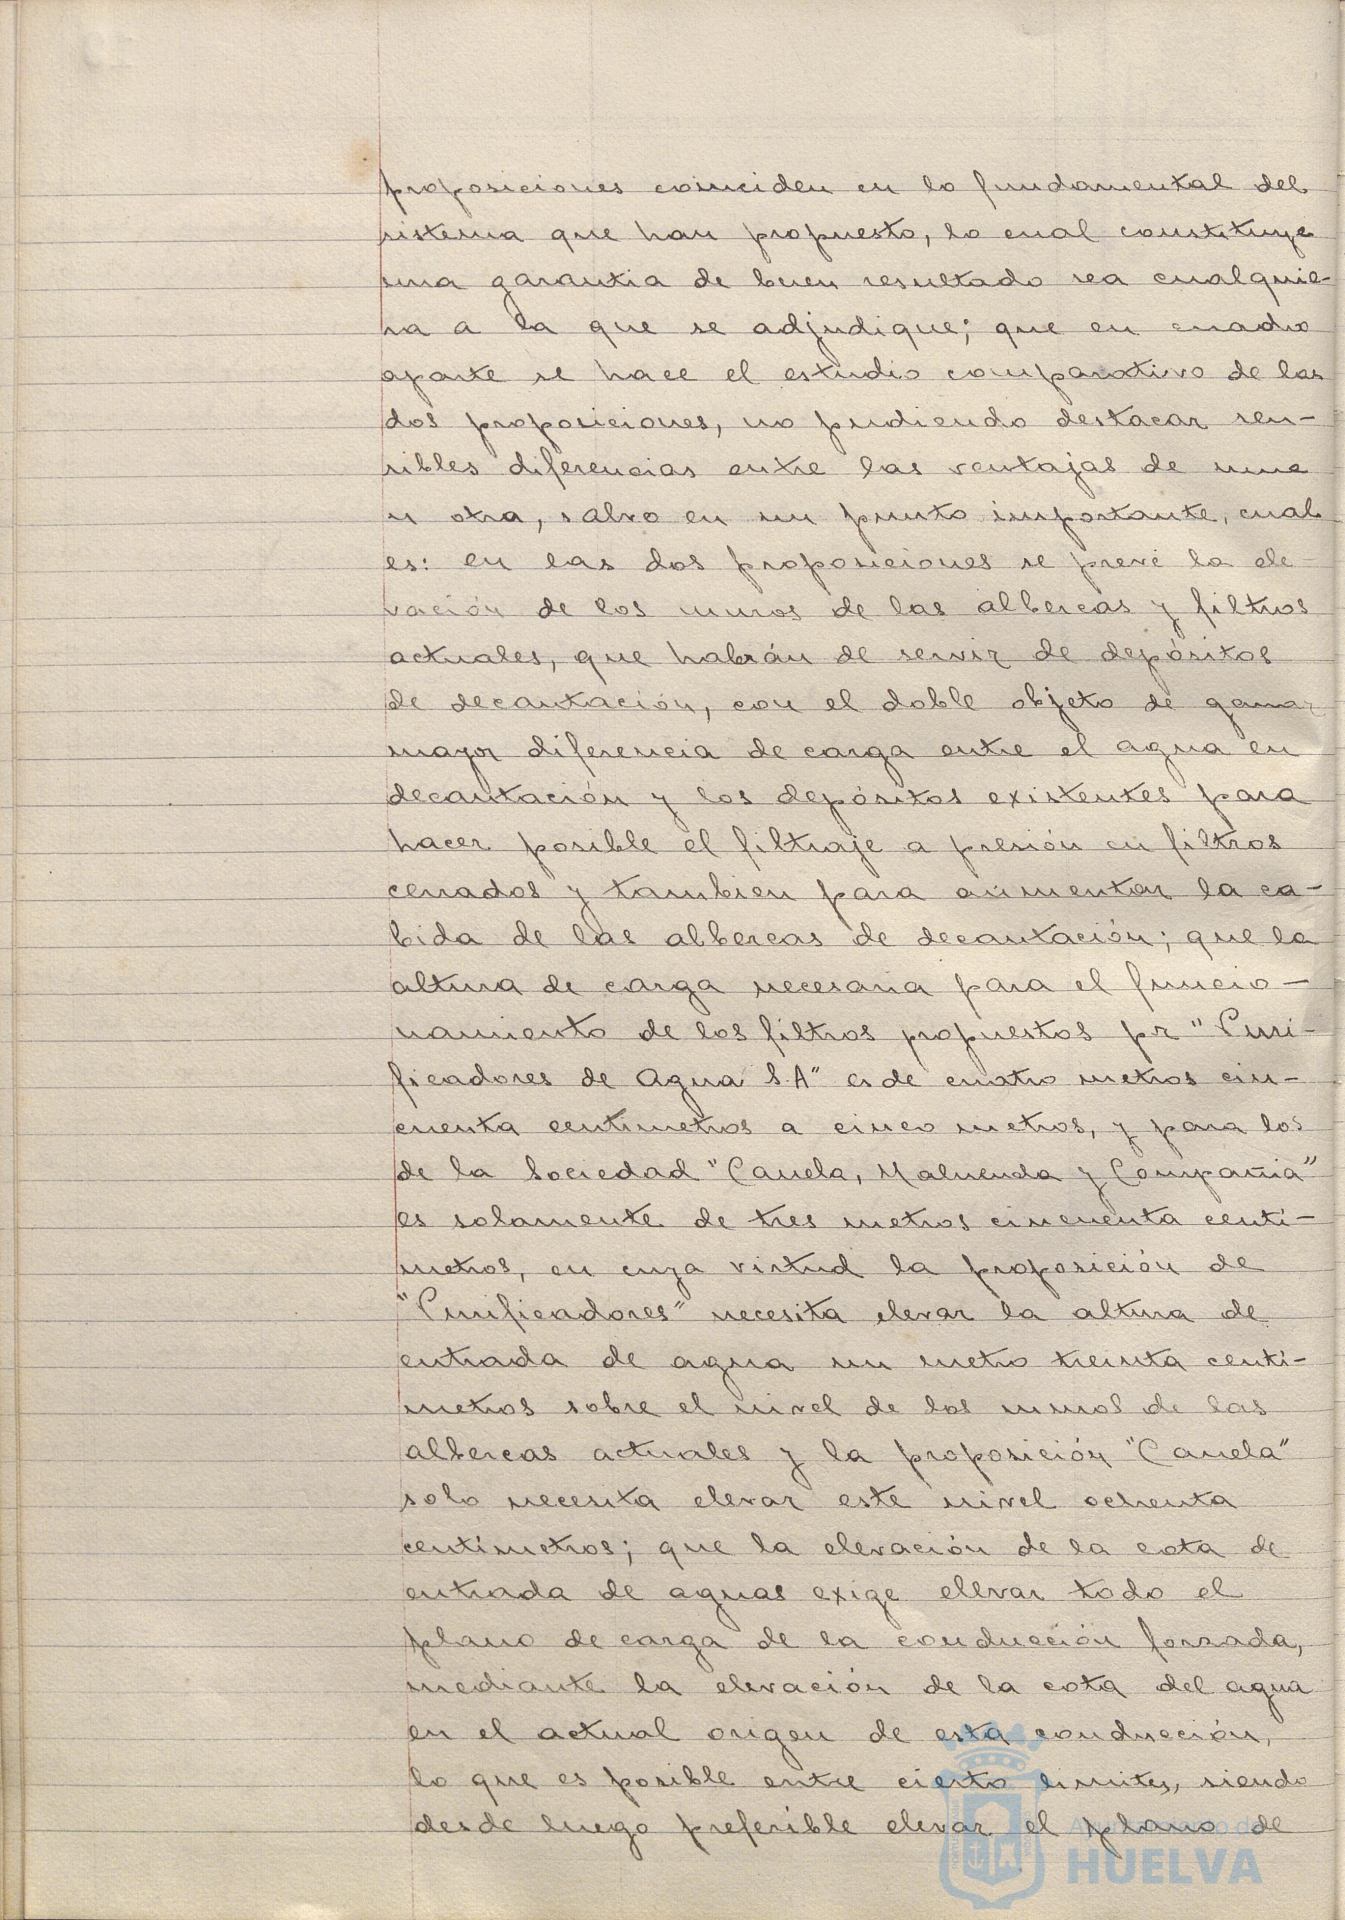 proposiciones coinciden en lo fundamental del
sistema que han propuesto, lo cual constituye
una garantia de buen resultado sea cualquie-
ra a la que se adjudique; que en cuadro
aparte se hace el estudio comparativo de las
dos proposiciones, no pudiendo destacar sen-
sibles diferencias entre las ventajas de una
u otra, salvo en un punto importante, cual
es: en las dos proposiciones se prevé la ele-
vación de los muros de las albercas y filtros
actuales, que habrán de servir de depósitos
de decantación, con el doble objeto de ganar
mayor diferencia de carga entre el agua en
decantación y los depósitos existentes para
hacer posible el filtraje a presión en filtros
cerrados y tambien para aumentar la ca-
bida de las albercas de decantación; que la
altura de carga necesaria para el funcio-
namiento de los filtros propuestos pr "Puri-
ficadores de Agua S.A" es de cuatro metros cin-
cuenta centimetros a cinco metros, y para los
de la Sociedad "Canela, Maluenda y Compañia"
es solamente de tres metros cincuenta centi-
metros, en cuya virtud la proposición de
"Purificadores" necesita elevar la altura de
entrada de agua un metro treinta centi-
metros sobre el nivel de los muros de las
albercas actuales y la proposición "Canela"
solo necesita elevar este nivel ochenta
centimetros; que la elevación de la cota de
entrada de aguas exige elevar todo el
plano de carga de la conducción forzada,
mediante la elevación de la cota del agua
en el actual origen de esta conducción,
lo que es posible entre cierto limites, siendo
desde luego preferible elevar el plano de
Ayuntamiento de
HUELVA